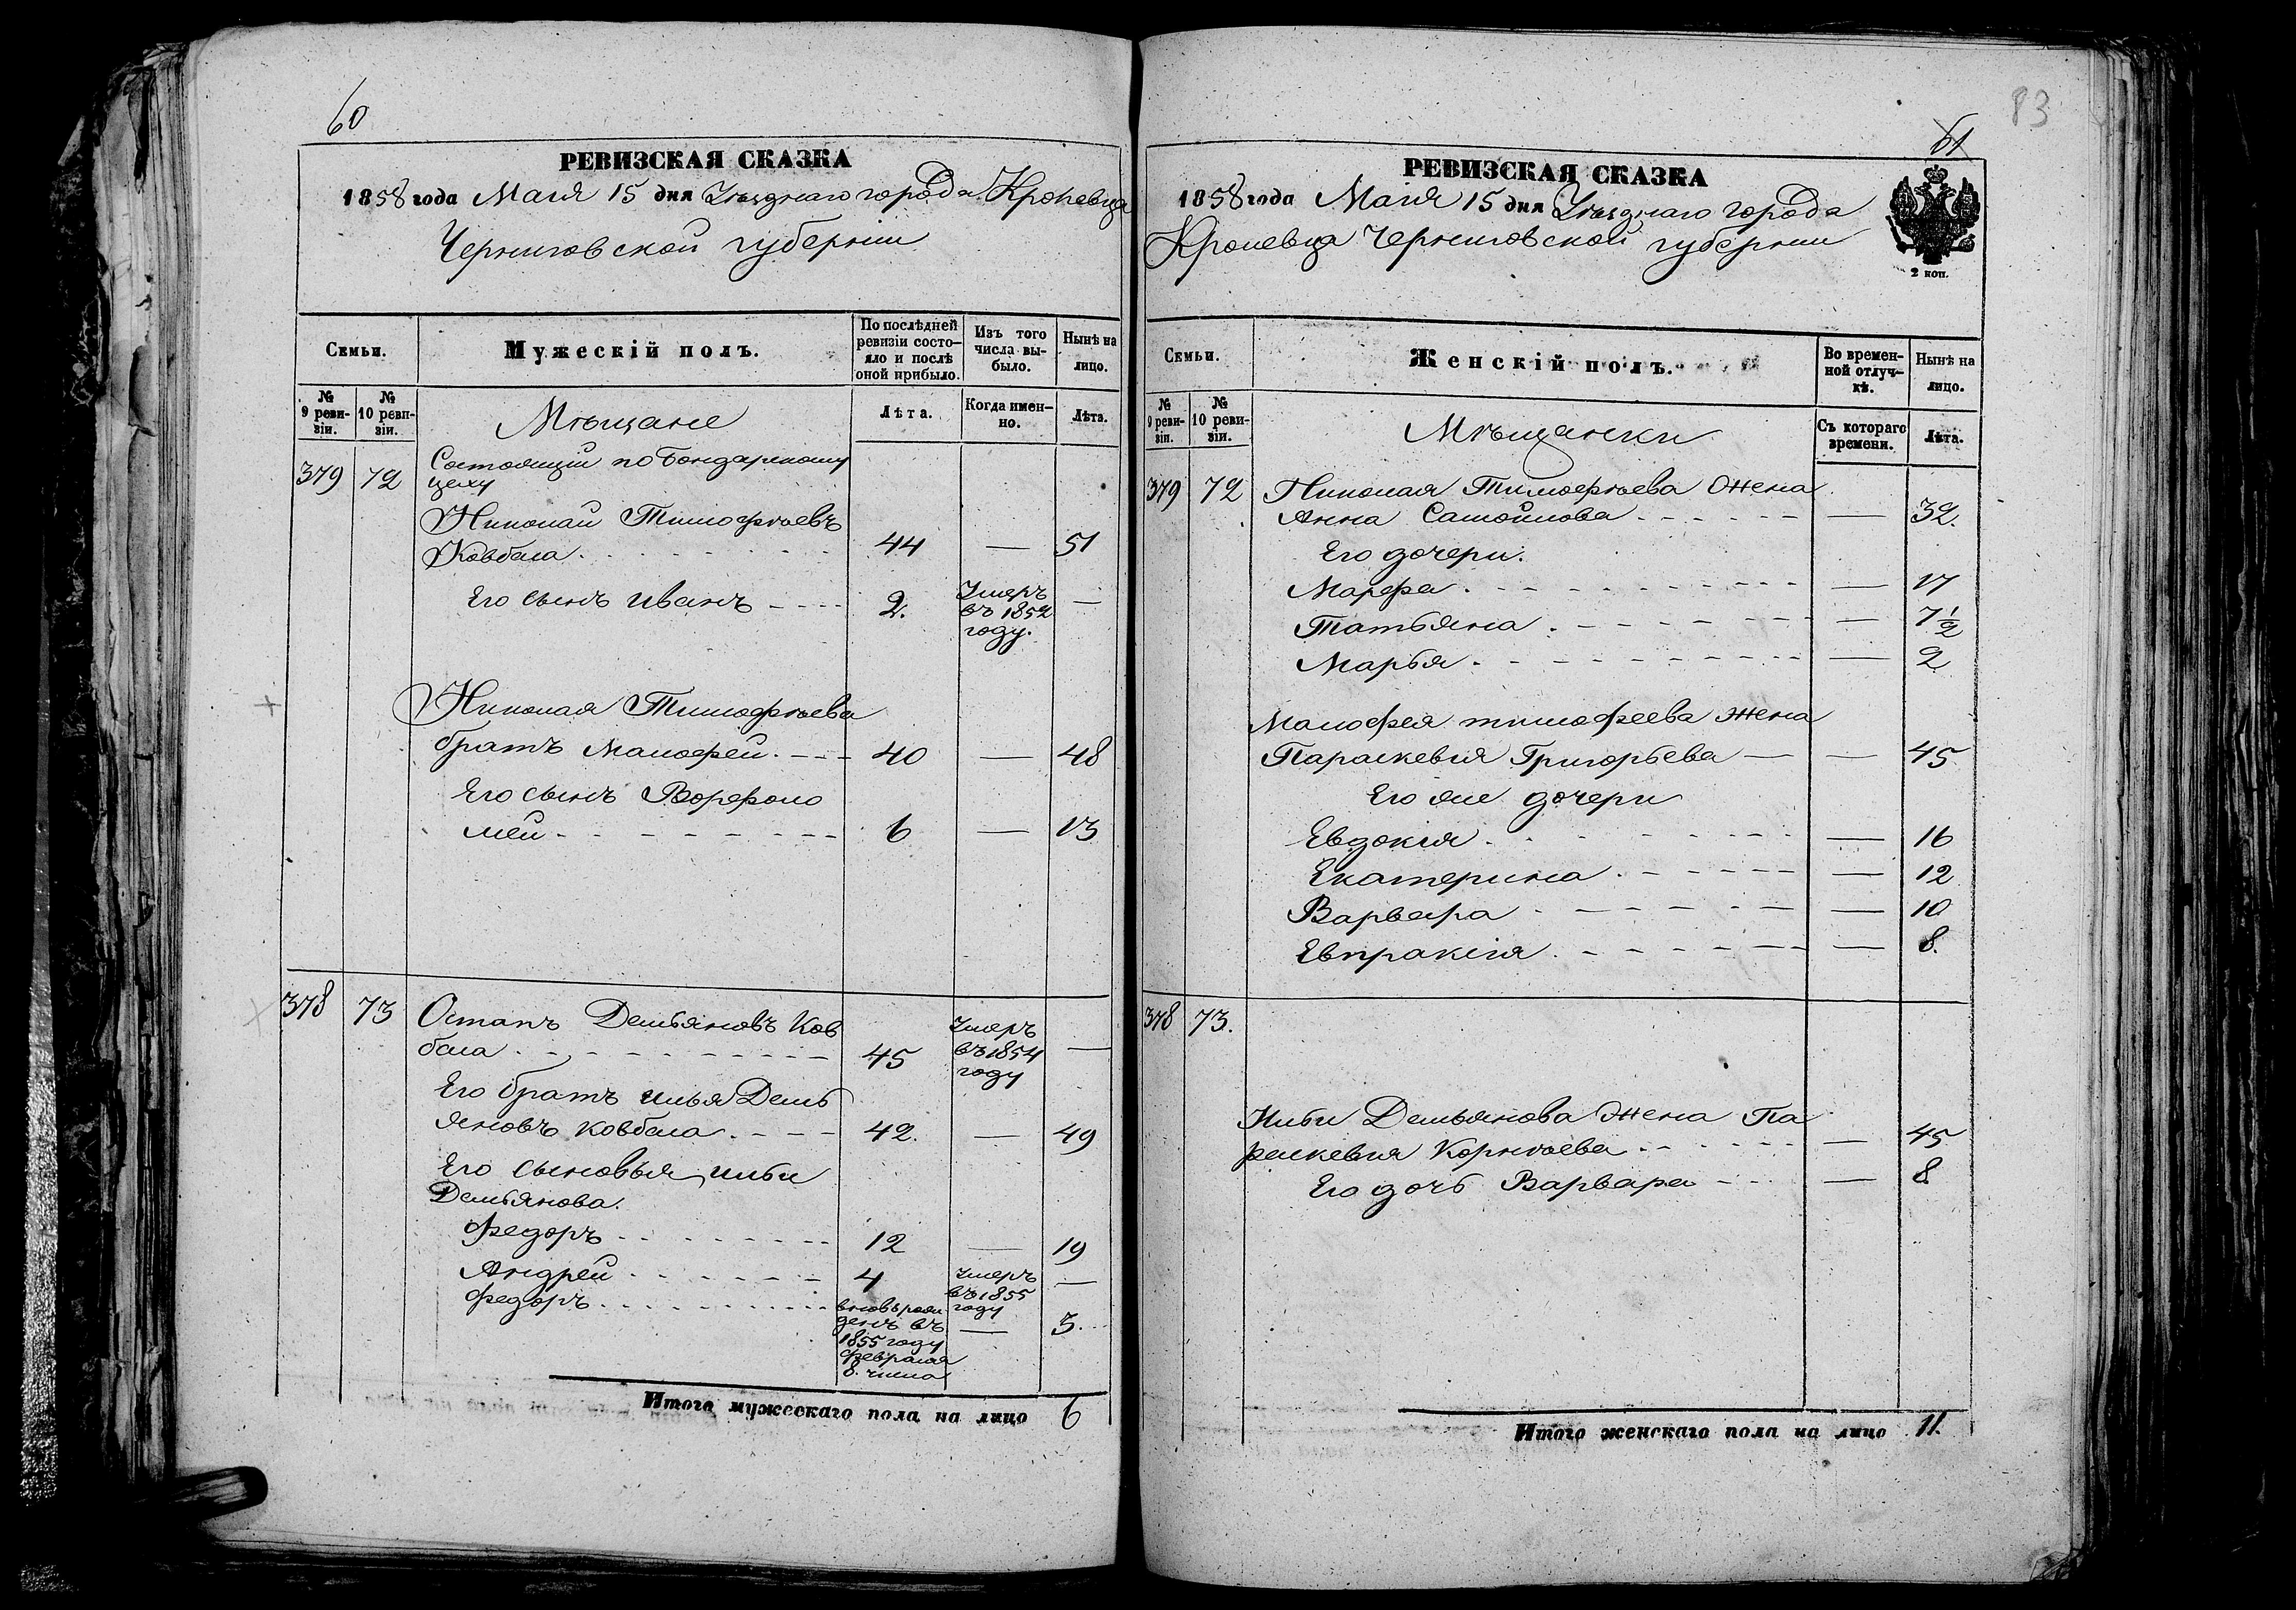 60
РЕВИЗСКАЯ СКАЗКА
1858 года Маія 15 дня Уѣзднаго города Кролевца
Черниговской губерніи
Семьи.
Мужескій полъ.
По послѣдней
ревизіи состо-
яло и послѣ
оной прибыло.
Изъ того
числа вы-
было.
Нынѣ на
лицо.
№
9 реви-
зіи.
№
10 реви-
зіи.
Мѣщане
Лѣта.
Когда имен-
но.
Лѣта.
379 72 Состоящіи по Бондарскому
цеху
Николай Тимофѣевъ
Ковбаса 44 — 51
Его сынъ Иванъ 2. Умеръ
въ 1852
году. —
Николая Тимофѣева
братъ Малофей 40 — 48
Его сынъ Ворфоло
мей 6 — 13
378 73 Остапъ Демьяновъ Ков
баса 45 Умеръ
въ 1854
году —
Его братъ Илья Демь
яновъ Ковбаса 42. — 49
Его сыновья Ильи
Демьянова.
Федоръ 12 — 19
Андрей 4 Умеръ
въ 1855
году —
Федоръ вновь рож
денъ въ
1855 году
Февраля
8. числа — 3.
Итого мужескаго пола на лицо 6
83
61
РЕВИЗСКАЯ СКАЗКА
1858 года Маія 15 дня Уѣзднаго города
Кролевца Черниговской губерніи
2 коп.
Семьи.
Женскій полъ.
Во времен-
ной отлуч-
кѣ.
Нынѣ на
лицо.
№
9 реви-
зіи.
№
10 реви-
зіи.
Мѣщанки
Съ котораго
времени.
Лѣта.
379 72 Николая Тимофѣева Жена
Анна Самойлова — 32.
Его дочери.
Марфа — 17
Татьяна — 7 1/2
Марья — 2
Малофея Тимофеева Жена
Параскевия Григорьева — 45
Его же дочери
Евдокія — 16
Екатерина — 12
Варвара — 10
Евпракія — 8.
378 73.
Ильи Демьянова Жена Па
раскевия Корнѣева — 45
Его дочь Варвара — 8.
Итого женскаго пола на лицо 11.